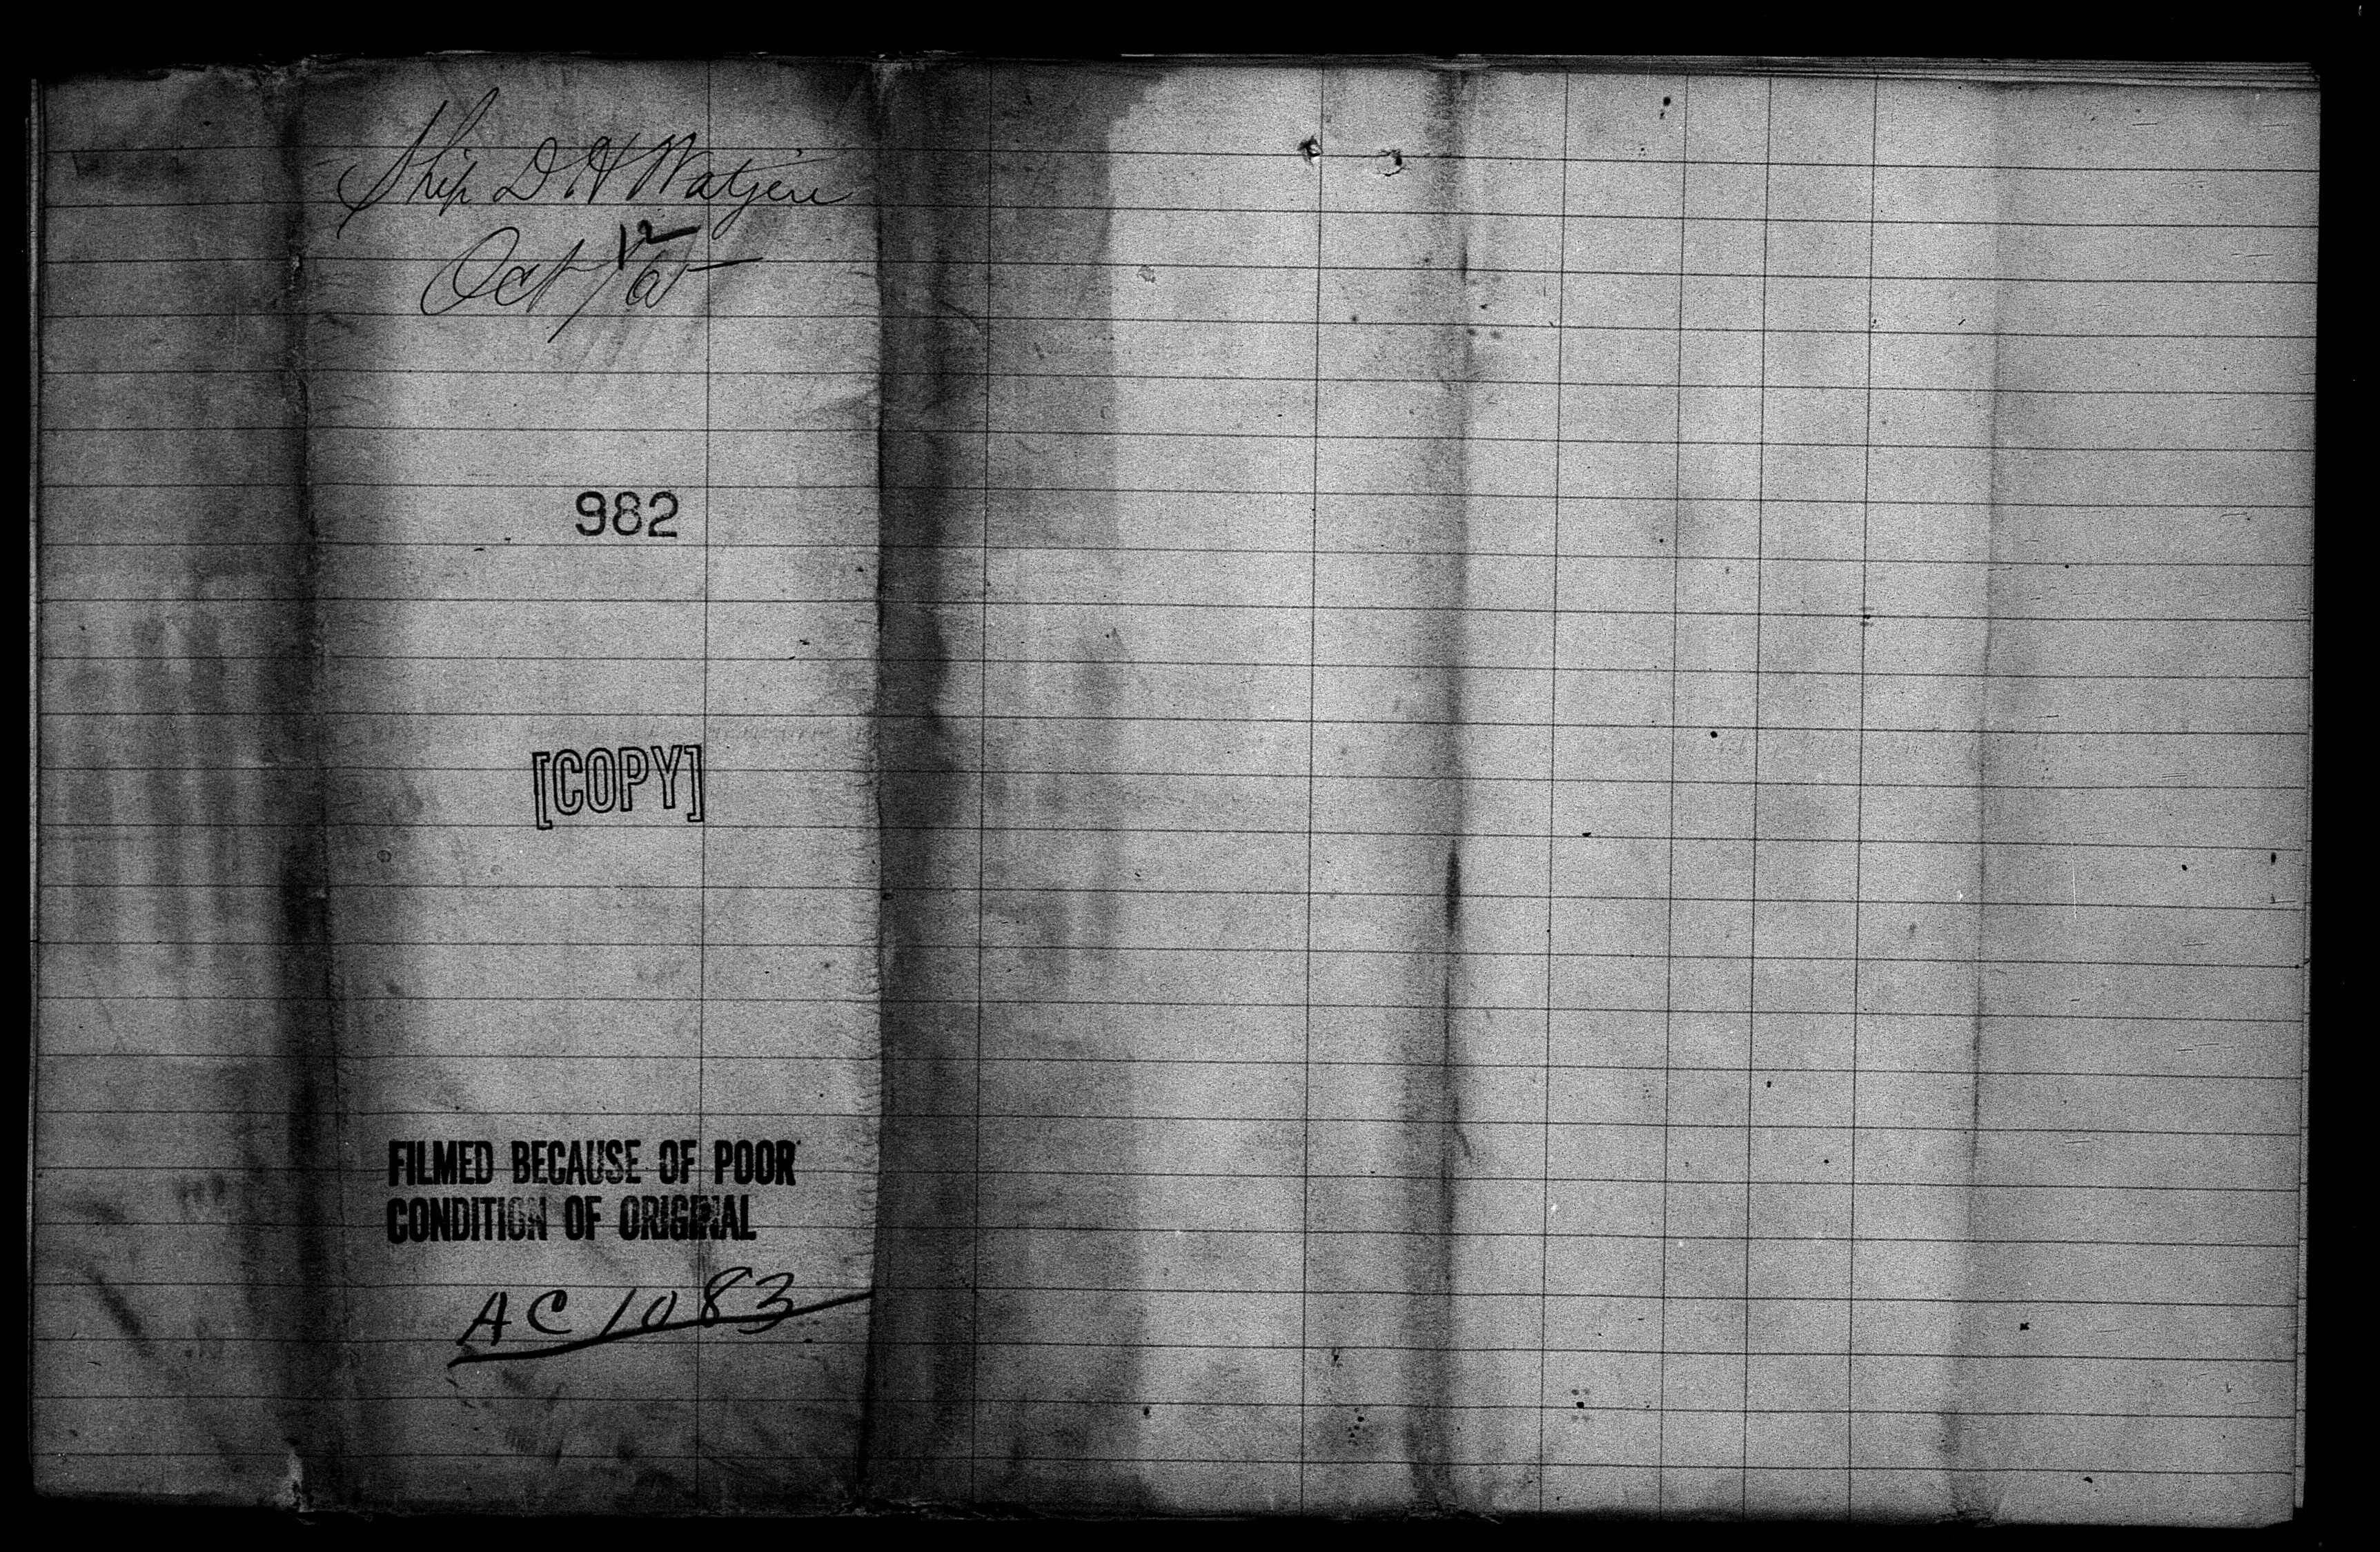 Ship D H Watjen
Oct 12/65
982
[COPY]
FILMED BECAUSE OF POOR
CONDITION OF ORIGINAL
AC 1083